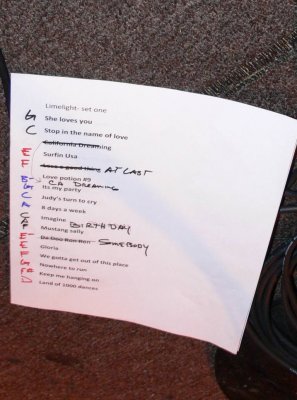 Limelight- set one
G She loves you
C Stop in the name of love
California Dreaming
E Surfin Usa
F AT LAST
Love potion #9
CA DREAMING
Its my party
Judy's turn to cry
8 days a week
Imagine BIRTHDAY
Mustang sally
Da Doo Ron Ron SOMEBODY
Gloria
We gotta get out of this place
Nowhere to run
Keep me hanging on
Land of 1000 dances